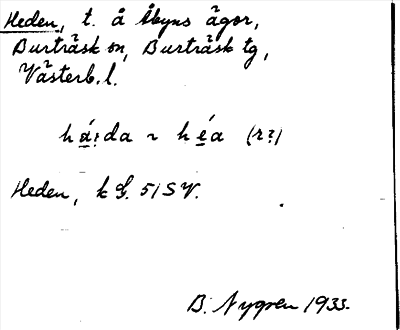 Heden, t. å Åbyns ägor,
Burträsk sn, Burträsk tg,
Västerb. l.
há:da ~ héa (r?)
Heden, k G. 51 SV.
B. Nygren 1933.